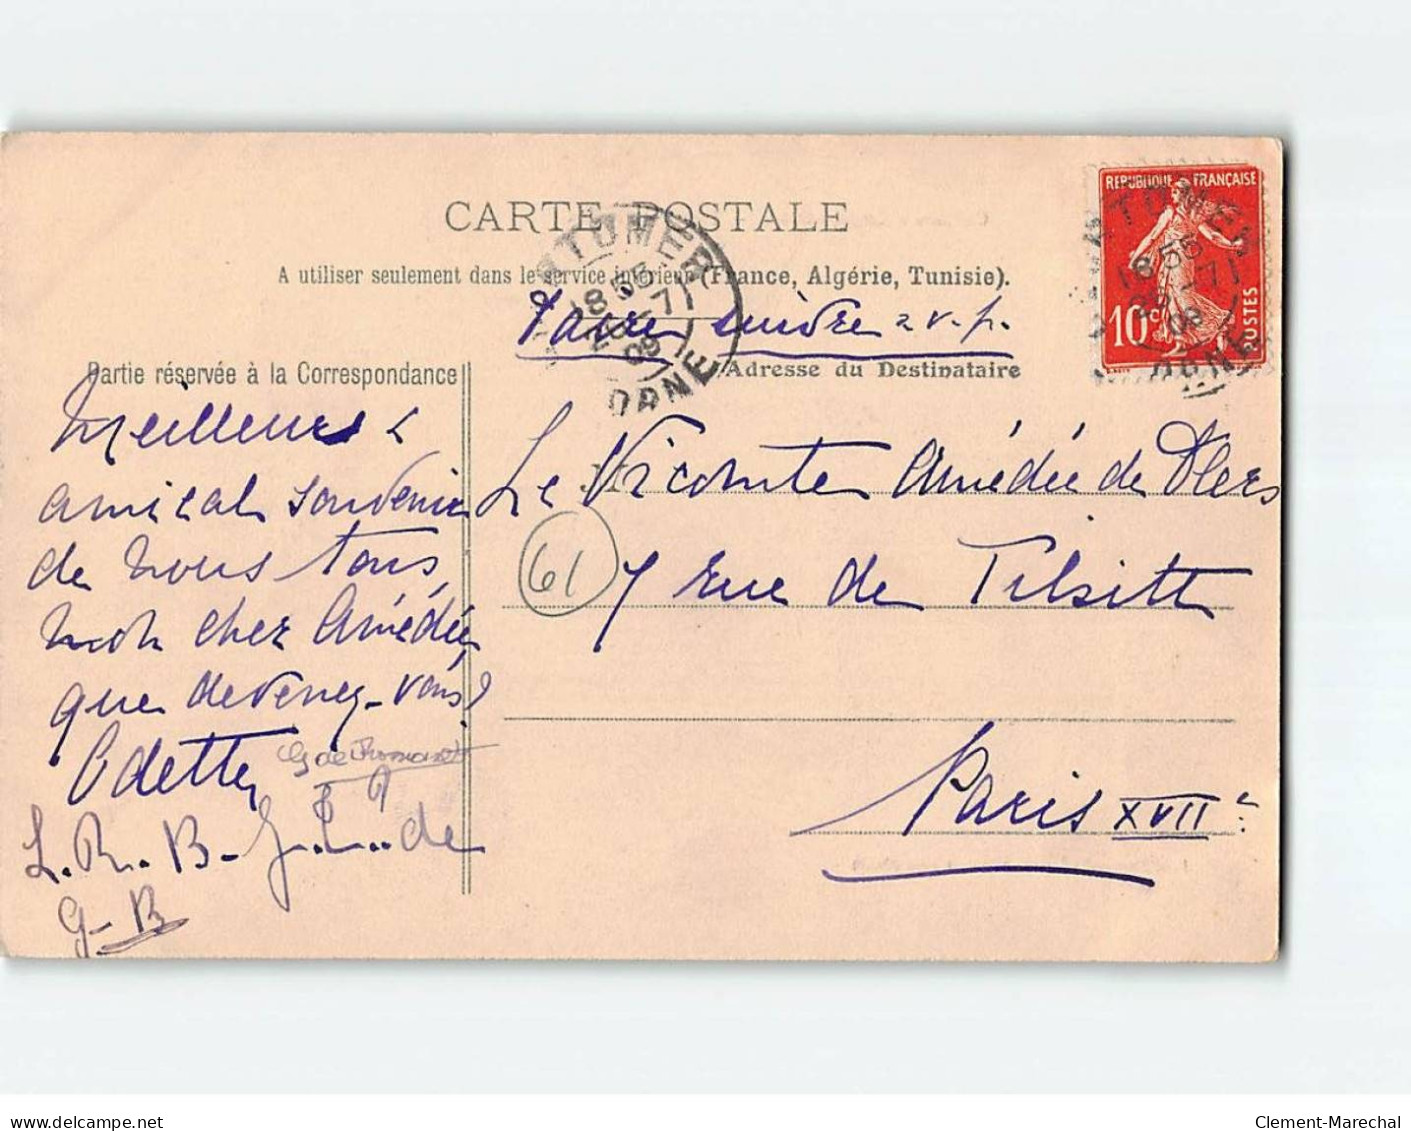 CARTE POSTALE
A utiliser seulement dans le service intérieur (France, Algérie, Tunisie).
faire suivre s.v.p.
Partie réservée à la Correspondance
Adresse du Destinataire
REPUBLIQUE FRANÇAISE
10c
POSTES
TOMER
18 55
25 -7
09
ORNE
TOMER
18 55
25 -7
09
ORNE
Meilleurs &
amical souvenir
de nous tous,
mon cher Amédée
que devenez-vous?
Odette
de Romanet
L. R. B. J. L. de
G-B
Le Vicomte Amédée de Flers
61
7 rue de Tilsitt
Paris XVIIe
delcampe.net
Clement-Marechal